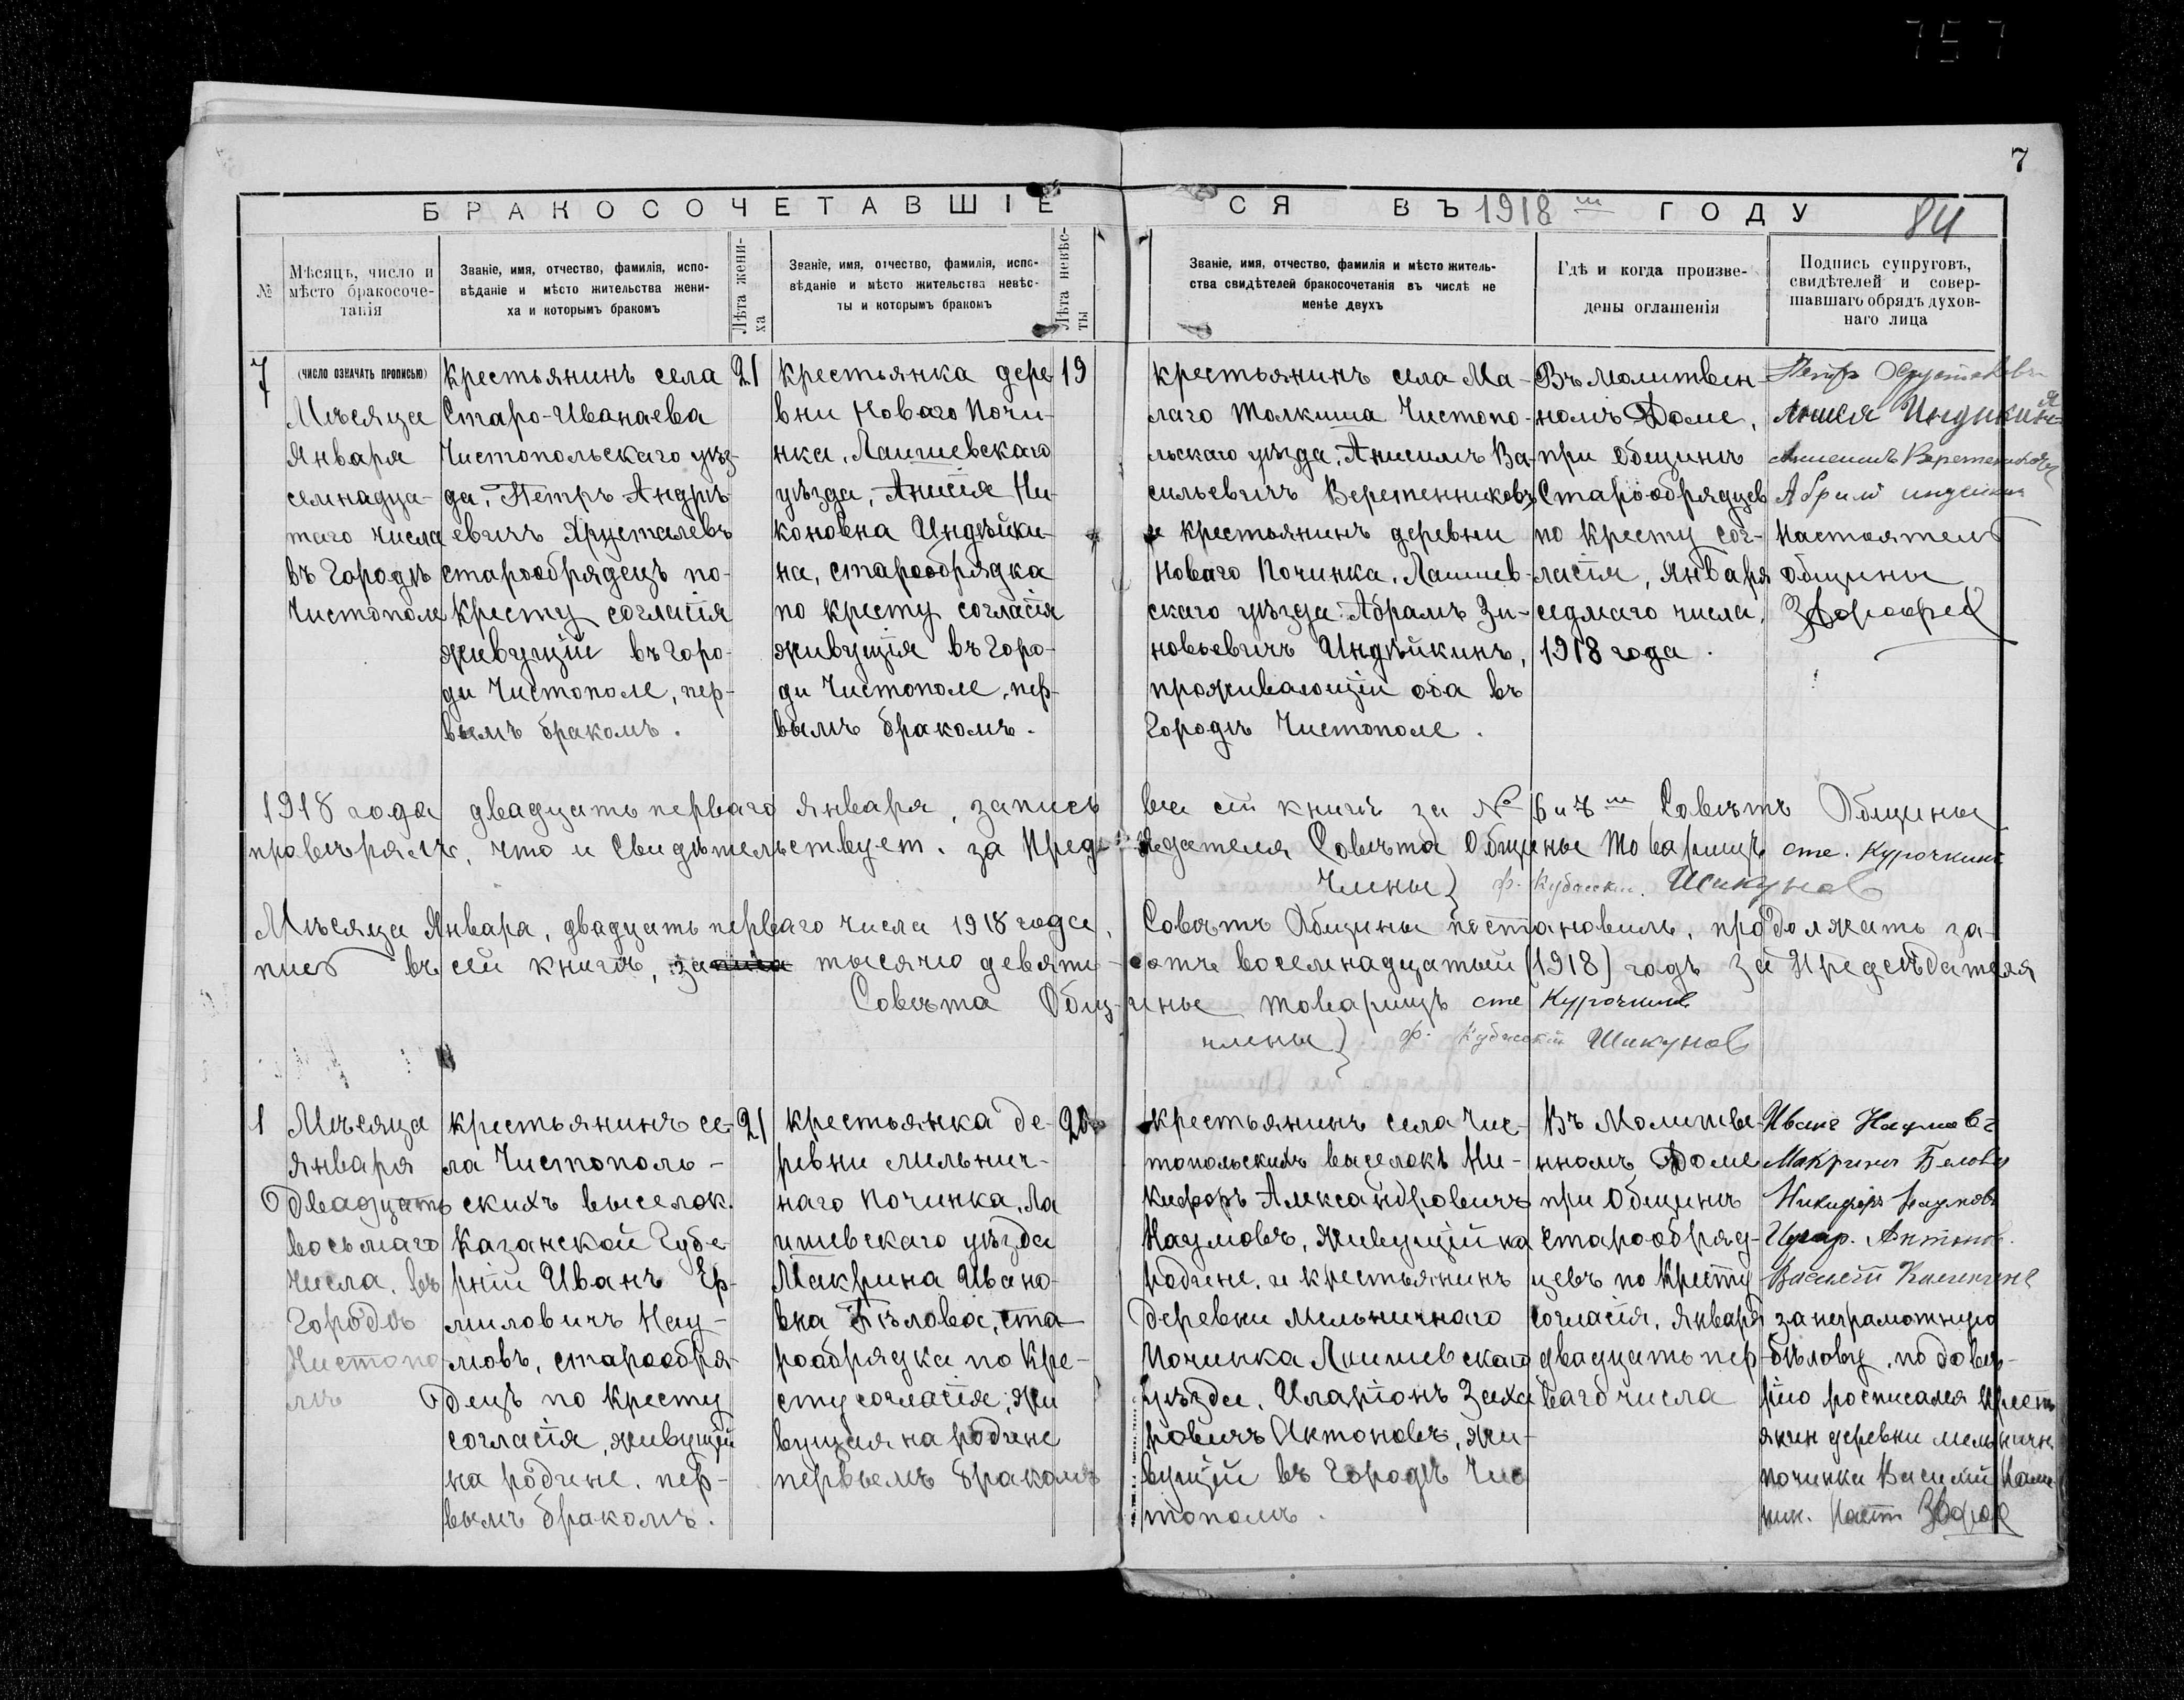 757
7
БРАКОСОЧЕТАВШІЕСЯ ВЪ 1918 му ГОДУ
84
№
Мѣсяцъ, число и
мѣсто бракосоче-
танія
Званіе, имя, отчество, фамилія, испо-
вѣданіе и мѣсто жительства жени-
ха и которымъ бракомъ
Лѣта жени-
ха
Званіе, имя, отчество, фамилія, испо-
вѣданіе и мѣсто жительства невѣс-
ты и которымъ бракомъ
Лѣта невѣс-
ты
Званіе, имя, отчество, фамилія и мѣсто житель-
ства свидѣтелей бракосочетанія въ числѣ не
менѣе двухъ
Гдѣ и когда произве-
дены оглашенія
Подпись супруговъ,
свидѣтелей и совер-
шавшаго обрядъ духов-
наго лица
7
(ЧИСЛО ОЗНАЧАТЬ ПРОПИСЬЮ)
Мѣсяца
Января
семнадца-
таго числа
въ Городѣ
Чистополе
Крестьянинъ села
Старо-Иванаева
Чистопольскаго уѣз-
да, Петръ Андрѣ-
евичъ Хрусталевъ
старообрядецъ по-
кресту согласія
живущій въ горо-
ди Чистополе, пер-
вымъ бракомъ.
21
крестьянка дере
вни Новаго Почи-
нка, Лаишевскаго
уѣзда, Анисія Ни-
коновна Индѣйки-
на, старообрядка
по кресту согласія
живущія въ горо-
ди Чистополе, пер-
вымъ бракомъ.
19
крестьянинъ села Ма-
лаго Толкиша Чистопо-
льскаго уѣзда, Анисимъ Ва-
сильевичъ Веретенниковъ
и крестьянинъ деревни
Новаго Починка, Лаишев-
скаго уѣзда: Абрамъ Зи-
новьевичъ Индѣйкинъ,
проживающіи оба въ
Городѣ Чистополе.
Въ молитвен-
номъ Доме,
при Общинѣ
Старообрядцев
по кресту сог-
ласія, Января
седмаго числа,
1918 года.
Петръ Хрусталевъ
Анисія Индикиня
Анисимъ Веретенниковъ
Абрам индейкин
Настоятель
общины
1918 года двадцать перваго Января, запись ве сій книгѣ за № 6 и 7 м Совѣтъ Общины
провѣрялъ, что и Свидѣтельствует. за Председателя Совѣта Общины Товарищъ сте. Курочкинъ
Члены} ф. Кубасски. Шикунов
Мѣсяца Января, двадцать перваго числа 1918 года, Совѣтъ Общины постановилъ, продолжать за-
пись въ сей книгѣ, записа тысячю девяти-сотъ восемнадцатый (1918) годъ за Председѣдателя
Совѣта Общины товарищъ сте Курочкинъ
члены} ф. Кубасскій Шикунов
1
Мѣсяца
Января
Двадцать
восьмаго
числа, въ
Городѣ
Чистопо
лѣ
крестьянинъ се-
ла Чистополь-
скихъ выселок.
Казанской Губе-
рніи Иванъ Ер-
миловичъ Нау-
мовъ, старообря-
децъ по кресту
согласія, живущій
на родине. пер-
вымъ бракомъ.
21
крестьянка де-
ревни мильнич-
наго починка, Ла
ишевскаго уѣзда
Макрина Ивано-
вна Бѣлова, ста
рообрядка по Кре-
сту согласія, жи
вущая на родине
первымъ бракомъ
20
Крестьянинъ села Чис-
топольскихъ выселокъ Ни-
кифоръ Александровичъ
Наумовъ, живущій на
родине, и крестьянинъ
деревни Мельничнаго
Починка Лаишевскаго
Уѣзда, Иларіонъ Заха
ровичъ Антоновъ, жи-
вущій въ Городѣ Чис
тополѣ.
Въ Молитве-
нномъ Доме
при Общинѣ
старообряд-
цевъ по кресту
согласія, Января
двадцать пер-
ваго числа
Иванъ Наумовъ
Макрина Белова
Никифоръ Наумовъ
Антонов.
Василій
за неграмотную
бѣлову, по довѣ-
рію росписался крест
янин деревни мельничн.
починка Василий Каме
кин.